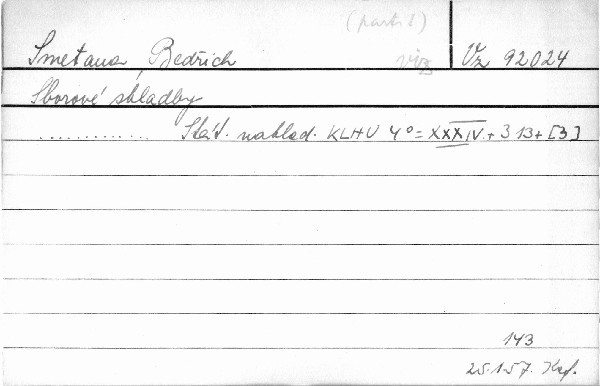 (part. 1)
Smetana, Bedřich viz Vz 92024
Sborové skladby
............. Stát. naklad. KLHU 4°= XXXIV + 313 + [3]
143
25.1.57.